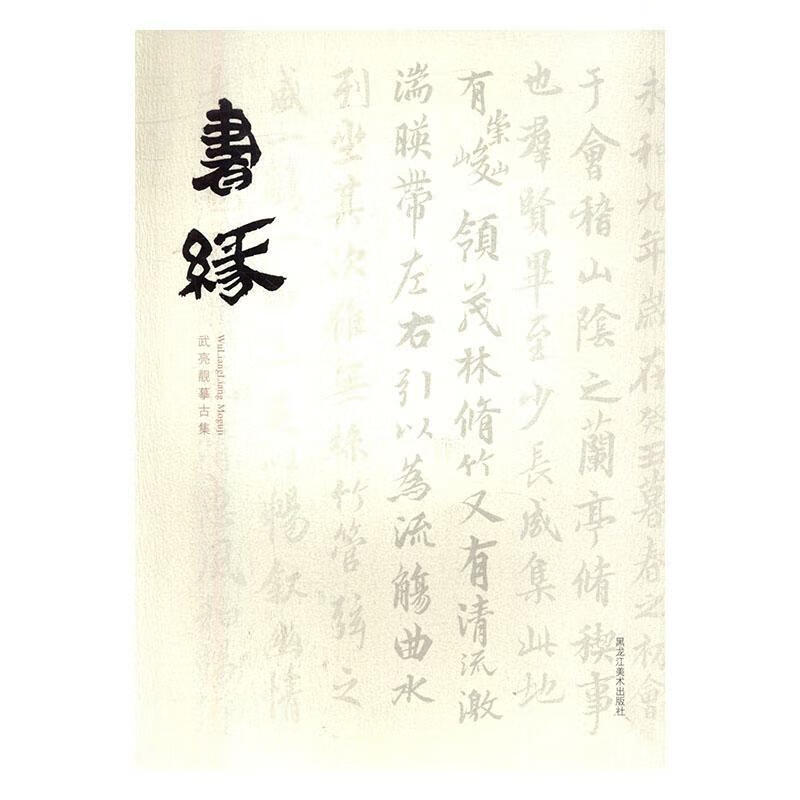 書緣
武亮靓摹古集
WuLiangLiang Moguji
永和九年歲在癸丑暮春之初會
于會稽山陰之蘭亭脩稧事
也羣賢畢至少長咸集此地
有崇山峻領茂林脩竹又有清流激
湍暎帶左右引以為流觴曲水
列坐其次雖無絲竹管弦之
盛一觴一 以暢叙幽情
惠風和暢
黑龙江美术出版社